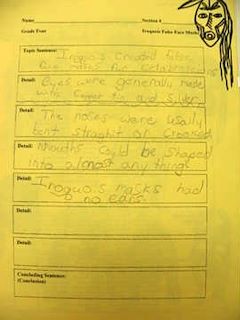 Name
Section #
Grade Four
Iroquois False Face Masks
Topic Sentence:
Iroquois Created false
for celebrations
Detail:
Eyes were generally made
with copper tin and silver.
Detail:
The noses were
bent straght or crooked.
Detail:
Mouths could be shaped
into almost any thing.
Detail:
Iroquois masks had
no ears.
Detail:
Detail:
Concluding Sentence:
(Conclusion)